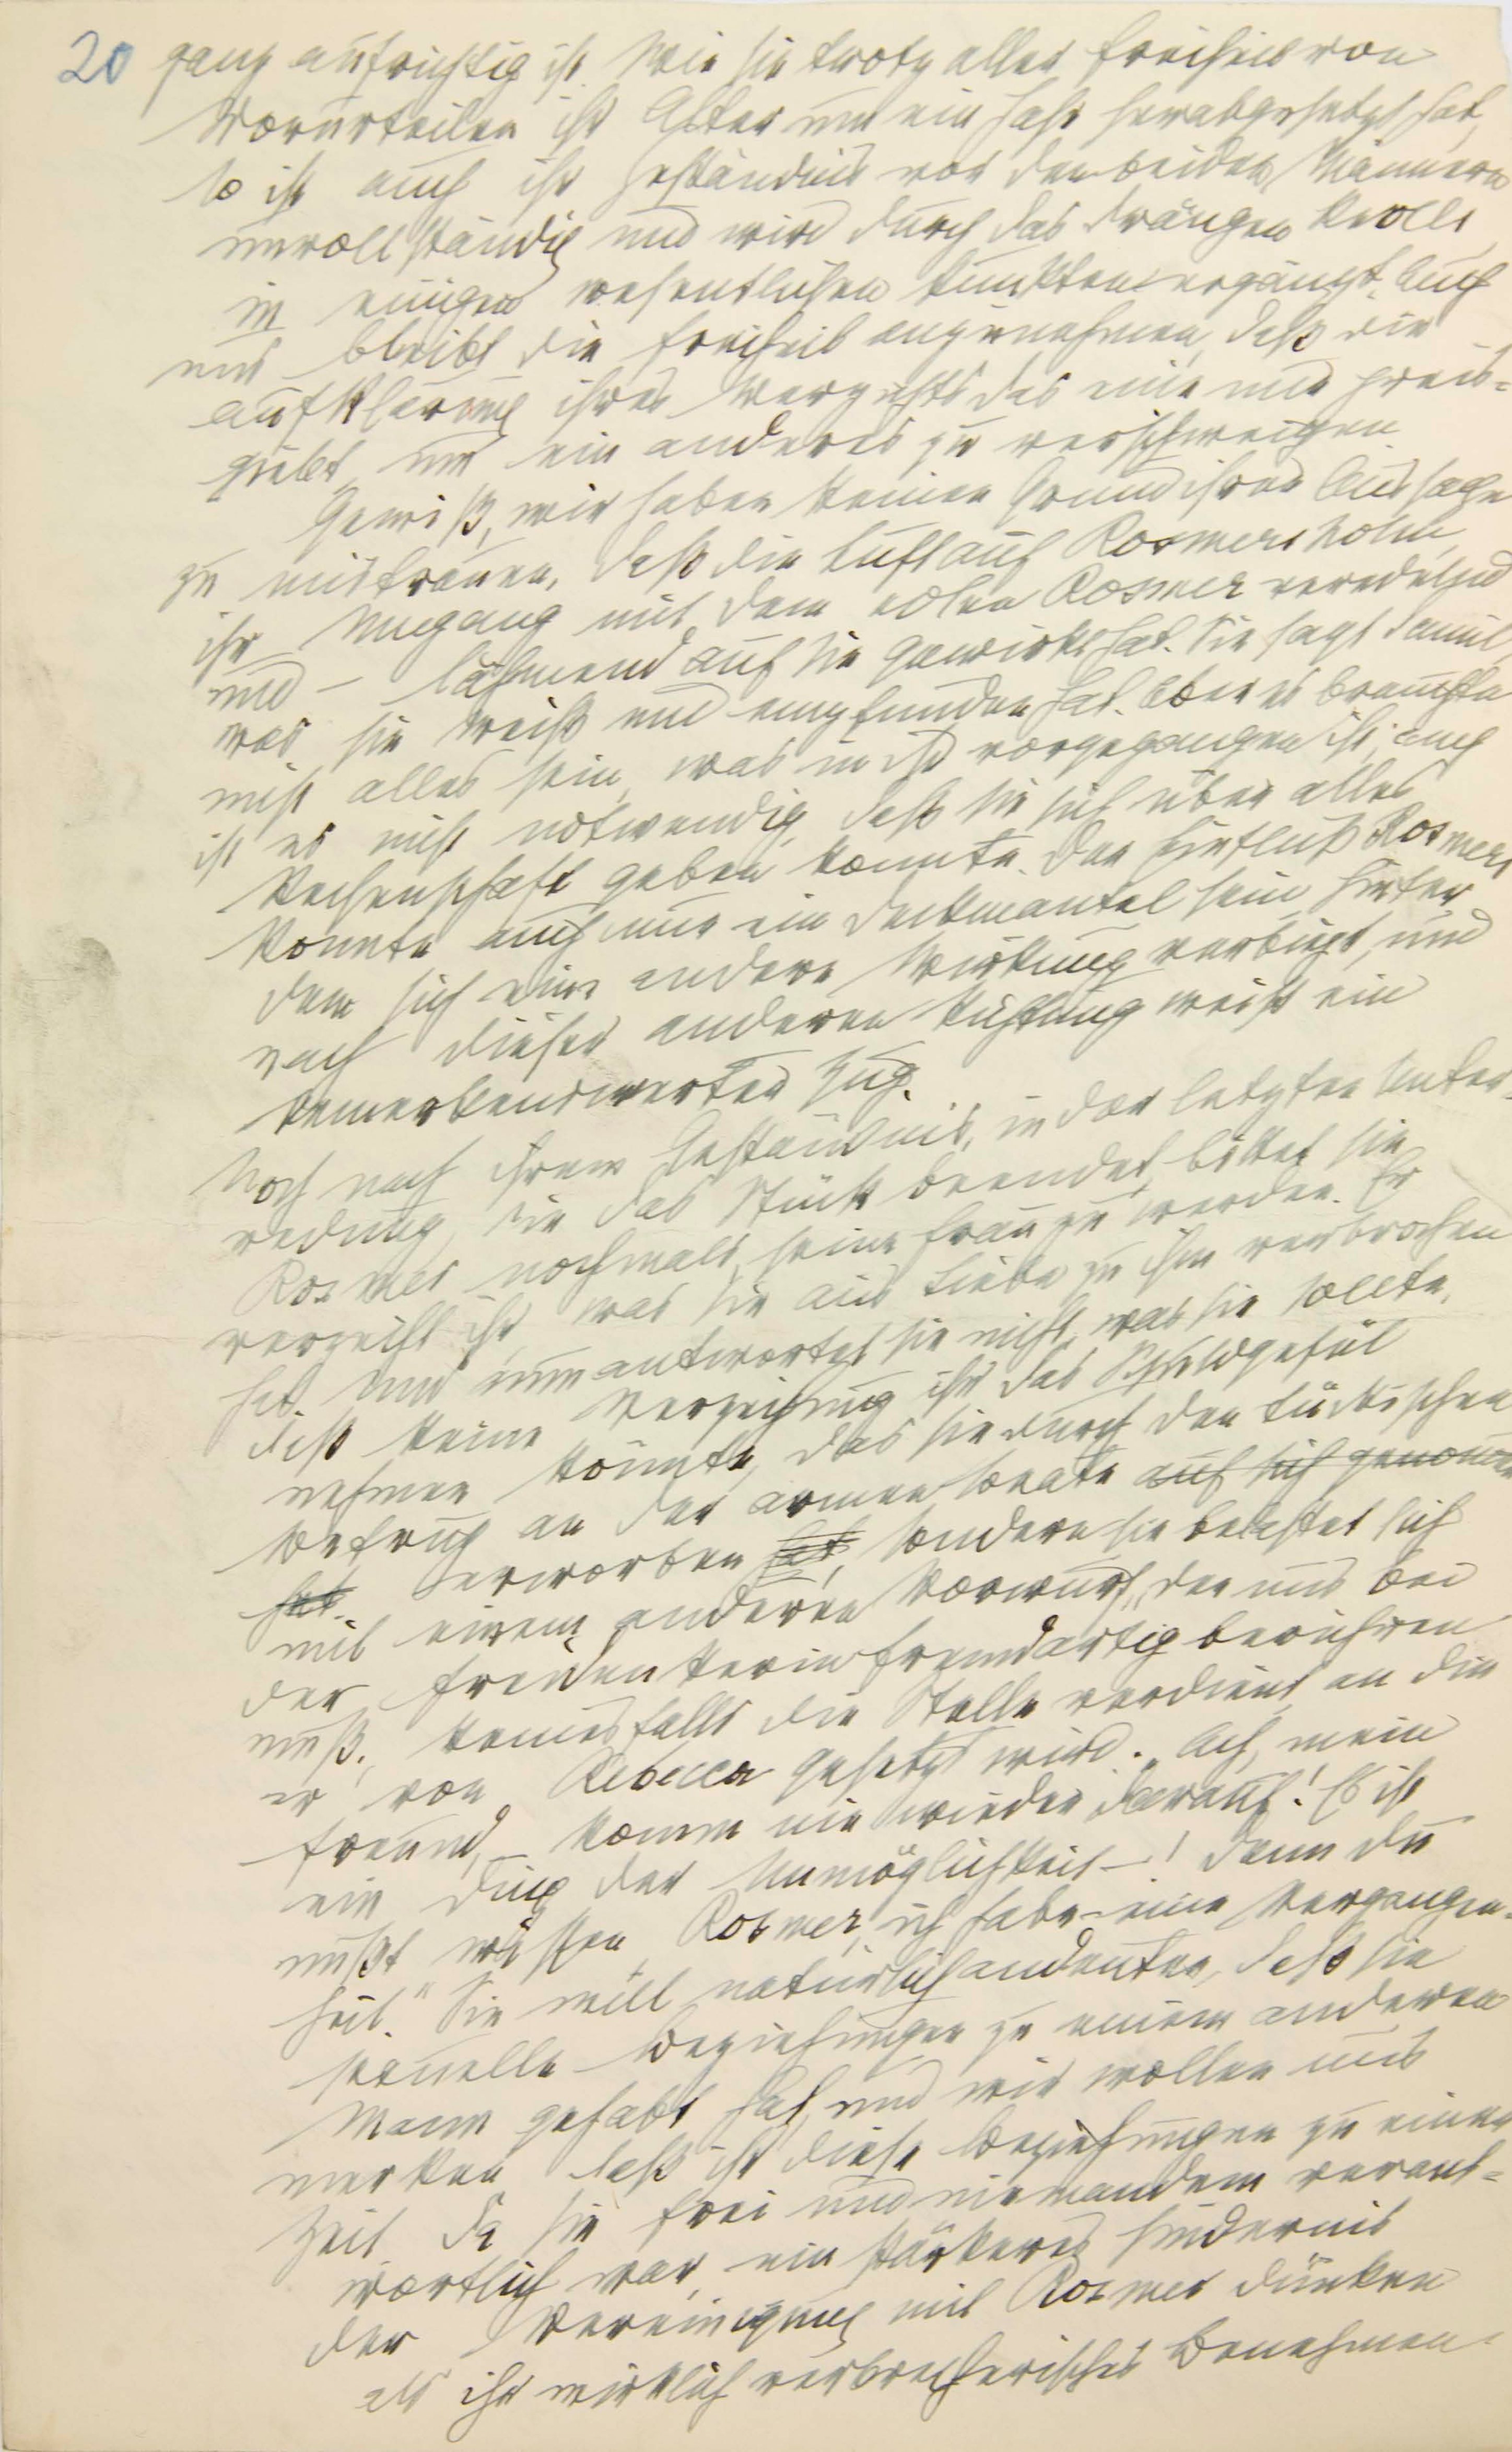 20 ganz aufrichtig ist. Wie sie trotz aller Freiheit von
Vorurteilen ihr Alter um ein Jahr herabgesetzt hat,
so ist auch ihr Geständnis vor den beiden Männern
unvollständig und wird durch das Drängen Krolls
in einigen wesentlichen Punkten ergänzt. Auch
uns bleibt die Freiheit anzunehmen, daß die
Aufklärung ihres Verzichts das eine nur preis=
giebt, um ein anderes zu verschweigen.
Gewiß, wir haben keinen Grund ihrer Aussage
zu mistrauen, daß die Luft auf Rosmersholm,
ihr Umgang mit dem edlen Rosmer veredelnd
und – lähmend auf sie gewirkt hat. Sie sagt damit,
was sie weiß und empfunden hat. Aber es brauchte
nicht alles sein, was in ihr vorgegangen ist; auch
ist es nicht notwendig, daß sie sich über alles
Rechenschaft geben konnte. Der Einfluß Rosmers
konnte auch nur ein Deckmantel sein hinter
dem sich eine andere Wirkung verbirgt, und
nach dieser anderen Richtung weist ein
bemerkenswerter Zug.
Noch nach ihrem Geständnis, in der letzten Unter=
redung, die das Stück beendet, bittet sie
Rosmer nochmals, seine Frau zu werden. Er
verzeiht ihr, was sie aus Liebe zu ihm verbrochen
hat. Und nun antwortet sie nicht, was sie sollte,
daß keine Verzeihung ihr das Schuldgefül
nehmen könnte, das sie durch den tückischen
Betrug an der armen Beate auf sich genommen
hat. erworben hat, sondern sie belastet sich
mit einem anderen Vorwurf, der uns bei
der Freidenkerin fremdartig berühren
muß, keinesfalls die Stelle verdient, an die
er von Rebecca gesetzt wird. „Ach, mein
Freund, – komm nie wieder darauf! Es ist
ein Ding der Unmöglichkeit –! Denn du
mußt wissen, Rosmer, ich habe – eine Vergangen=
heit." Sie will natürlich andeuten, daß sie
sexuelle Beziehungen zu einem anderen
Mann gehabt hat, und wir wollen uns
merken, daß ihr diese Beziehungen zu einer
Zeit, da sie frei und niemandem verant=
wortlich war, ein stärkeres Hindernis
der Vereinigung mit Rosmer dünken
als ihr wirklich verbrecherisches Benehmen